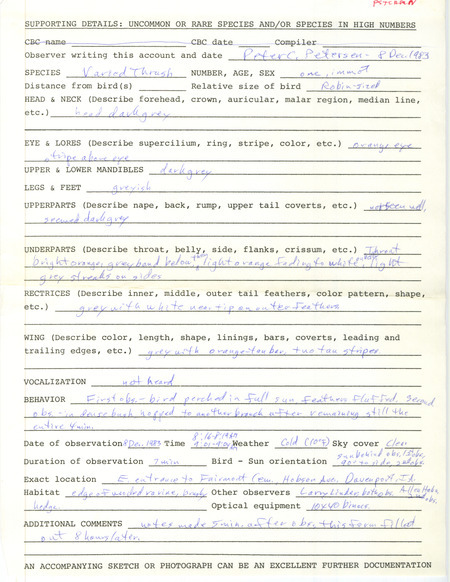 PETERSEN
SUPPORTING DETAILS: UNCOMMON OR RARE SPECIES AND/OR SPECIES IN HIGH NUMBERS
CBC name CBC date Compiler
Observer writing this account and date Peter C. Petersen - 8 Dec. 1983
SPECIES Varied Thrush NUMBER, AGE, SEX one, immat
Distance from bird(s) Relative size of bird Robin-sized
HEAD & NECK (Describe forehead, crown, auricular, malar region, median line,
etc.) head dark grey
EYE & LORES (Describe supercilium, ring, stripe, color, etc.) orange eye
stripe above eye
UPPER & LOWER MANDIBLES dark grey
LEGS & FEET greyish
UPPERPARTS (Describe nape, back, rump, upper tail coverts, etc.) not seen well,
seemed dark grey
UNDERPARTS (Describe throat, belly, side, flanks, crissum, etc.) Throat
bright orange, grey band below, light orange fading to white, light
grey streaks on sides
RECTRICES (Describe inner, middle, outer tail feathers, color pattern, shape,
etc.) grey with white near tip on outer feathers
WING (Describe color, length, shape, linings, bars, coverts, leading and
trailing edges, etc.) grey with orange-tan bar, two tan stripes
VOCALIZATION not heard
BEHAVIOR First obs. - bird perched in full sun, feathers fluffed. Second
obs. - in dense bush, hopped to another branch after remaining still the
entire 4 min.
Date of observation 8 Dec. 1983 Time Weather Cold (10°F) Sky cover Clear
Duration of observation 7 min Bird - Sun orientation sun behind obs, 1st obs,
90° to side, 2nd obs.
Exact location E. entrance to Fairmont Cem. Hobson Ave. Davenport, IA
Habitat edge of wooded ravine, brush Other observers Larry Linder both obs.
hedge. Optical equipment 10x40 binocs.
ADDITIONAL COMMENTS notes made 5 min. after obs., this form filled
out 8 hours later.
AN ACCOMPANYING SKETCH OR PHOTOGRAPH CAN BE AN EXCELLENT FURTHER DOCUMENTATION